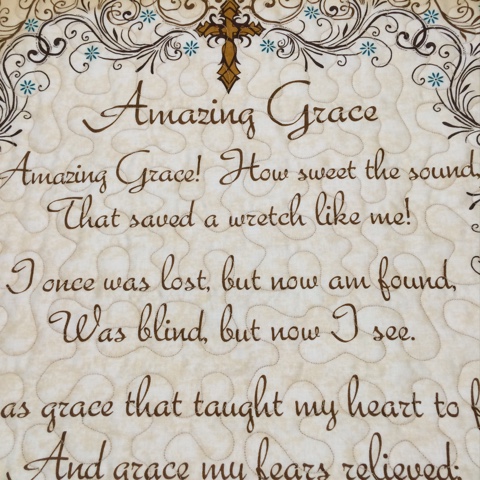 Amazing Grace
Amazing Grace! How sweet the sound,
That saved a wretch like me!
I once was lost, but now am found,
Was blind, but now I see.
as grace that taught my heart to
And grace my fears relieved;